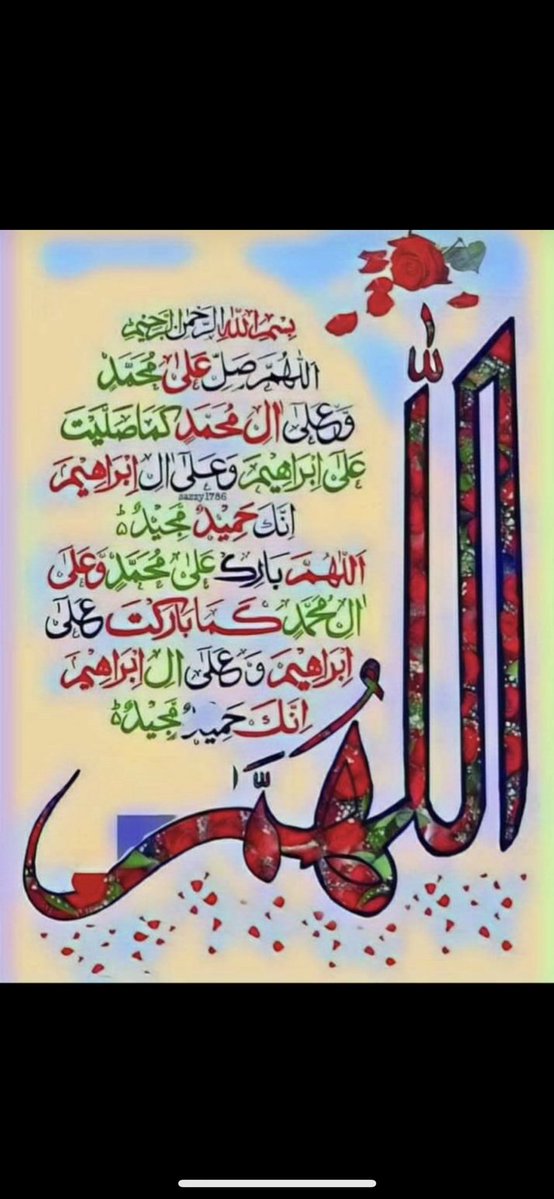 بِسْمِ اللهِ الرَّحْمٰنِ الرَّحِيْمِ
اَللّٰهُمَّ صَلِّ عَلٰى مُحَمَّدٍ
وَّعَلٰٓى اٰلِ مُحَمَّدٍ كَمَا صَلَّيْتَ
عَلٰٓى اِبْرَاهِيْمَ وَعَلٰٓى اٰلِ اِبْرَاهِيْمَ
sazzy1786
اِنَّكَ حَمِيْدٌ مَّجِيْدٌ ؕ
اَللّٰهُمَّ بَارِكْ عَلٰى مُحَمَّدٍ وَّعَلٰٓى
اٰلِ مُحَمَّدٍ كَمَا بَارَكْتَ عَلٰٓى
اِبْرَاهِيْمَ وَعَلٰٓى اٰلِ اِبْرَاهِيْمَ
اِنَّكَ حَمِيْدٌ مَّجِيْدٌ ؕ
اللّٰهُمَّ